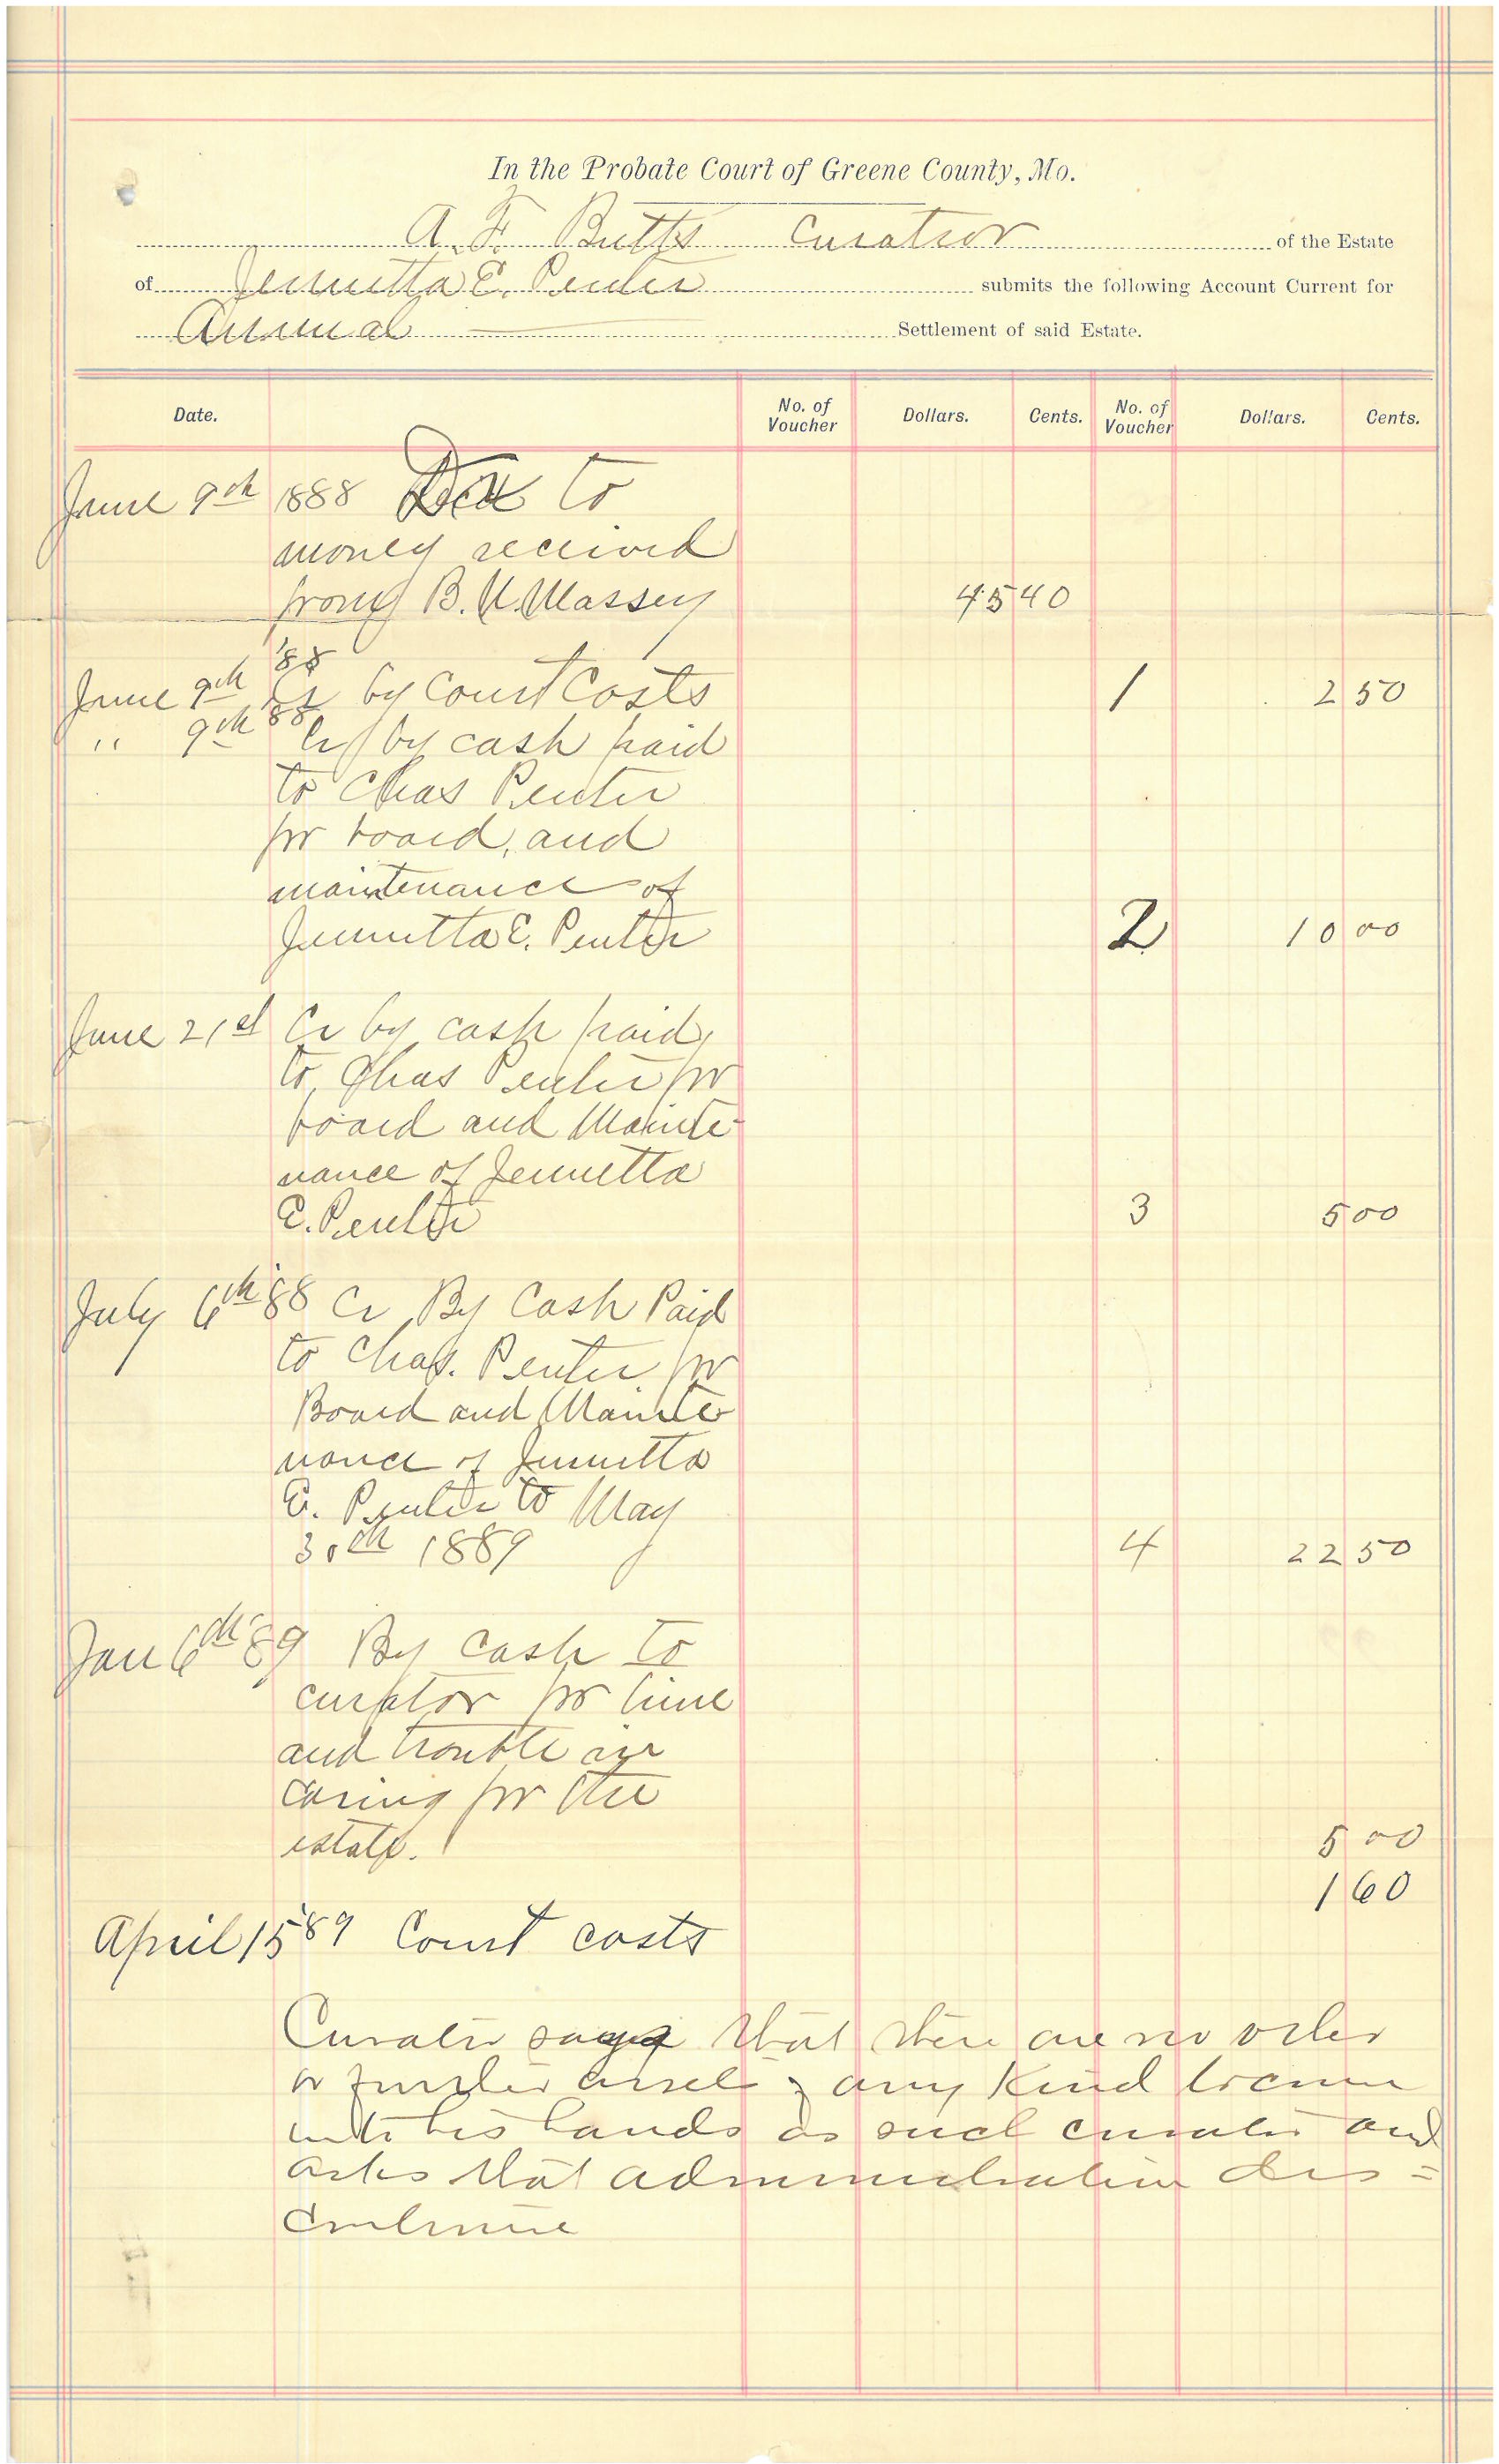 In the Probate Court of Greene County, Mo.
A. F. Butts Curator of the Estate
of Jennetta E. Penter submits the following Account Current for
Annual Settlement of said Estate.
Date. No. of Voucher Dollars. Cents. No. of Voucher Dollars. Cents.
June 9th 1888 to
money received
from B. U. Massey 45 40
'88
June 9th Cr by Court Costs 1 2 50
" 9th 88 Cr by cash paid
to Chas Penter
for board, and
maintenance of
Jennetta E. Penter 2 10 00
June 21st Cr by cash paid
to Chas Penter for
board and Mainte-
nance of Jennetta
E. Penter 3 5 00
July 6th '88 Cr By Cash Paid
to Chas. Penter for
Board and Mainte
nance of Jennetta
E. Penter to May
30th 1889 4 22 50
Jan 6th '89 By Cash to
curator for time
and trouble in
caring for the
estate. 5 00
1 60
April 15 '89 Court costs
Curator says that there are no other
or further assets of any kind to come
into his hands as such curator and
asks that administration dis=
continue